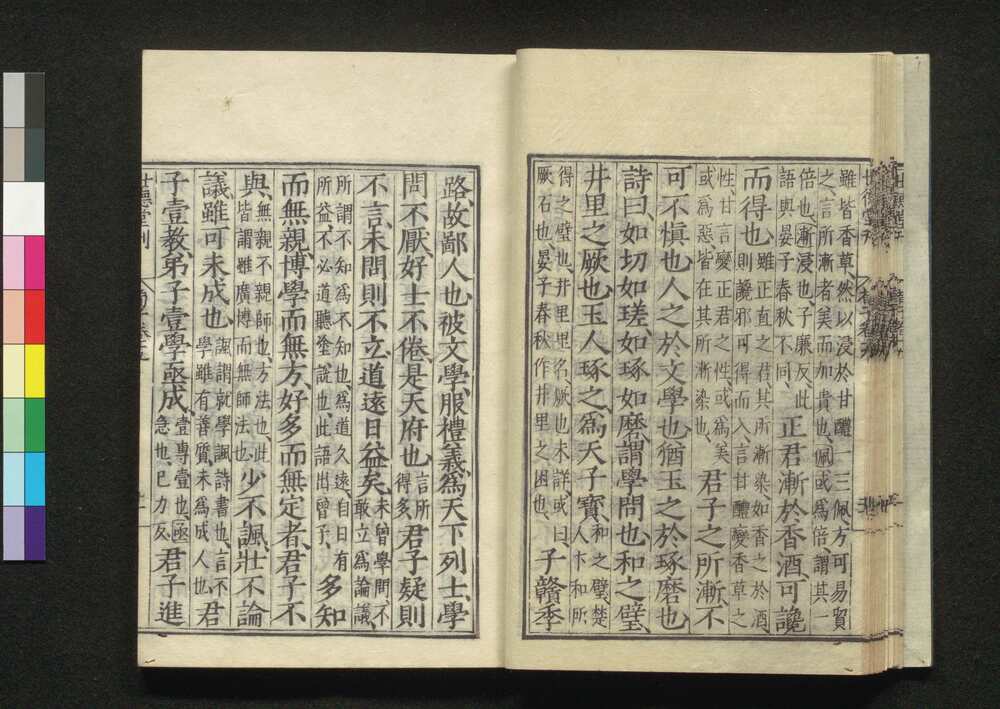 雖皆香草然以浸於甘醴一玉佩方可易買
之言所漸者美而加貴也佩或爲倍謂其一
倍也漸浸也子廉反此
語與晏子春秋不同
正君漸於香酒可讒
而得也
雖正直之君其所漸染如香之於酒
則讒邪可得而入言甘醴變香草之
性甘言變正君之性或爲美
或爲惡皆在其所漸染也
君子之所漸不
可不愼也人之於文學也猶玉之於琢磨也
詩曰如切如瑳如琢如磨謂學問也和之璧
井里之厥也玉人琢之爲天子寶
和之璧楚
人卞和所
得之璧也井里里名厥也未詳或曰
厥石也晏子春秋作井里之困也
子贛季
路故鄙人也被文學服禮義爲天下列士學
問不厭好士不倦是天府也
言所
得多
君子疑則
不言未問則不立道遠日益矣
未曾學問不
敢立爲論議
所謂不知爲不知也爲道久遠自日有
所益不必道聽塗説也此語出曾子
多知
而無親博學而無方好多而無定者君子不
與
無親不親師也方法也此
皆謂雖廣博而無師法也
少不諷壯不論
議雖可未成也
諷謂就學諷詩書也言不
學雖有善質未爲成人也
君
子壹教弟子壹學亟成
壹專壹也亟
急也已力反
君子進
世德堂刊